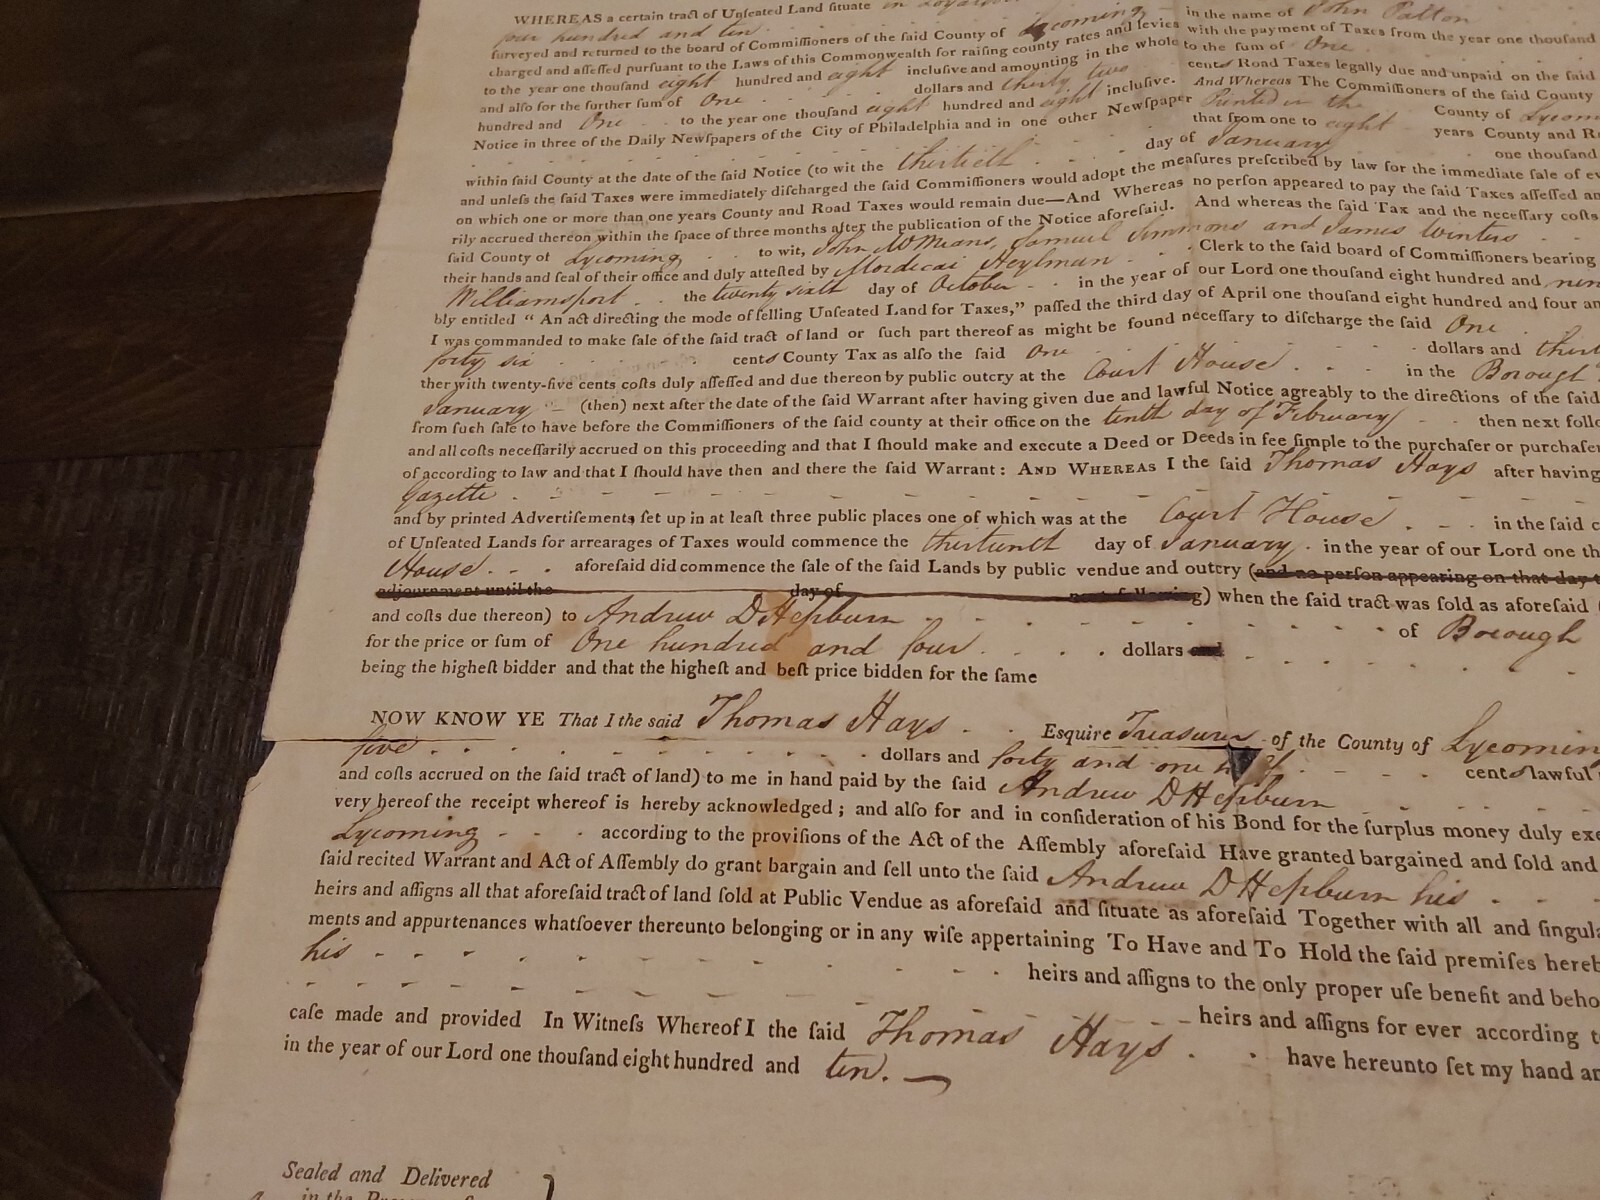 WHEREAS a certain tract of Unſeated Land ſituate in
four hundred and ten in the name of John Patton
ſurveyed and returned to the board of Commiſſioners of the ſaid County of Lycoming with the payment of Taxes from the year one thouſand
charged and aſſeſſed purſuant to the Laws of this Commonwealth for raiſing county rates and levies to the ſum of One
to the year one thouſand eight hundred and eight incluſive and amounting in the whole cents Road Taxes legally due and unpaid on the ſaid
and alſo for the further ſum of One dollars and thirty two And Whereas The Commiſſioners of the ſaid County
hundred and One to the year one thouſand eight hundred and eight incluſive. County of Lycom
Notice in three of the Daily Newſpapers of the City of Philadelphia and in one other Newſpaper Printed in the
that from one to eight years County and R
within ſaid County at the date of the ſaid Notice (to wit the thirtieth day of January one thouſand
and unleſs the ſaid Taxes were immediately diſcharged the ſaid Commiſſioners would adopt the meaſures preſcribed by law for the immediate ſale of ev
on which one or more than one years County and Road Taxes would remain due—And Whereas no perſon appeared to pay the ſaid Taxes aſſeſſed an
rily accrued thereon within the ſpace of three months after the publication of the Notice aforeſaid. And whereas the ſaid Tax and the neceſſary coſts
ſaid County of Lycoming to wit, John McMeans, Samuel Simmons and James Winters
their hands and ſeal of their office and duly atteſted by Mordecai Heylmun Clerk to the ſaid board of Commiſſioners bearing
Williamsport the twenty sixth day of October in the year of our Lord one thouſand eight hundred and nin
bly entitled “ An act directing the mode of ſelling Unſeated Land for Taxes,” paſſed the third day of April one thouſand eight hundred and four an
I was commanded to make ſale of the ſaid tract of land or ſuch part thereof as might be found neceſſary to diſcharge the ſaid One
forty six cents County Tax as alſo the ſaid One dollars and thirt
ther with twenty-five cents coſts duly aſſeſſed and due thereon by public outcry at the Court House in the Borough
January (then) next after the date of the ſaid Warrant after having given due and lawful Notice agreably to the directions of the ſaid
from ſuch ſale to have before the Commiſſioners of the ſaid county at their office on the tenth day of February then next follo
and all coſts neceſſarily accrued on this proceeding and that I ſhould make and execute a Deed or Deeds in fee ſimple to the purchaſer or purchaſer
of according to law and that I ſhould have then and there the ſaid Warrant: AND WHEREAS I the ſaid Thomas Hays after having
Gazette
and by printed Advertiſements ſet up in at leaſt three public places one of which was at the Court House in the ſaid c
of Unſeated Lands for arrearages of Taxes would commence the thirteenth day of January in the year of our Lord one th
House aforeſaid did commence the ſale of the ſaid Lands by public vendue and outcry (and no perſon appearing on that day t
adjournment until the day of next following) when the ſaid tract was ſold as aforeſaid (
and coſts due thereon) to Andrew D Hepburn of Borough
for the price or ſum of One hundred and four dollars and
being the higheſt bidder and that the higheſt and beſt price bidden for the ſame
NOW KNOW YE That I the said Thomas Hays Esquire Treasurer of the County of Lycoming
five dollars and forty and one half cents lawful
and coſts accrued on the ſaid tract of land) to me in hand paid by the ſaid Andrew D Hepburn
very hereof the receipt whereof is hereby acknowledged ; and alſo for and in conſideration of his Bond for the ſurplus money duly exe
Lycoming according to the proviſions of the Act of the Aſſembly aforeſaid Have granted bargained and ſold and
ſaid recited Warrant and Act of Aſſembly do grant bargain and ſell unto the ſaid Andrew D Hepburn his
heirs and aſſigns all that aforeſaid tract of land ſold at Public Vendue as aforeſaid and ſituate as aforeſaid Together with all and ſingula
ments and appurtenances whatſoever thereunto belonging or in any wiſe appertaining To Have and To Hold the ſaid premiſes hereb
his heirs and aſſigns to the only proper uſe benefit and beho
heirs and aſſigns for ever according t
caſe made and provided In Witneſs Whereof I the ſaid Thomas Hays have hereunto ſet my hand an
in the year of our Lord one thouſand eight hundred and ten.
Sealed and Delivered
in the